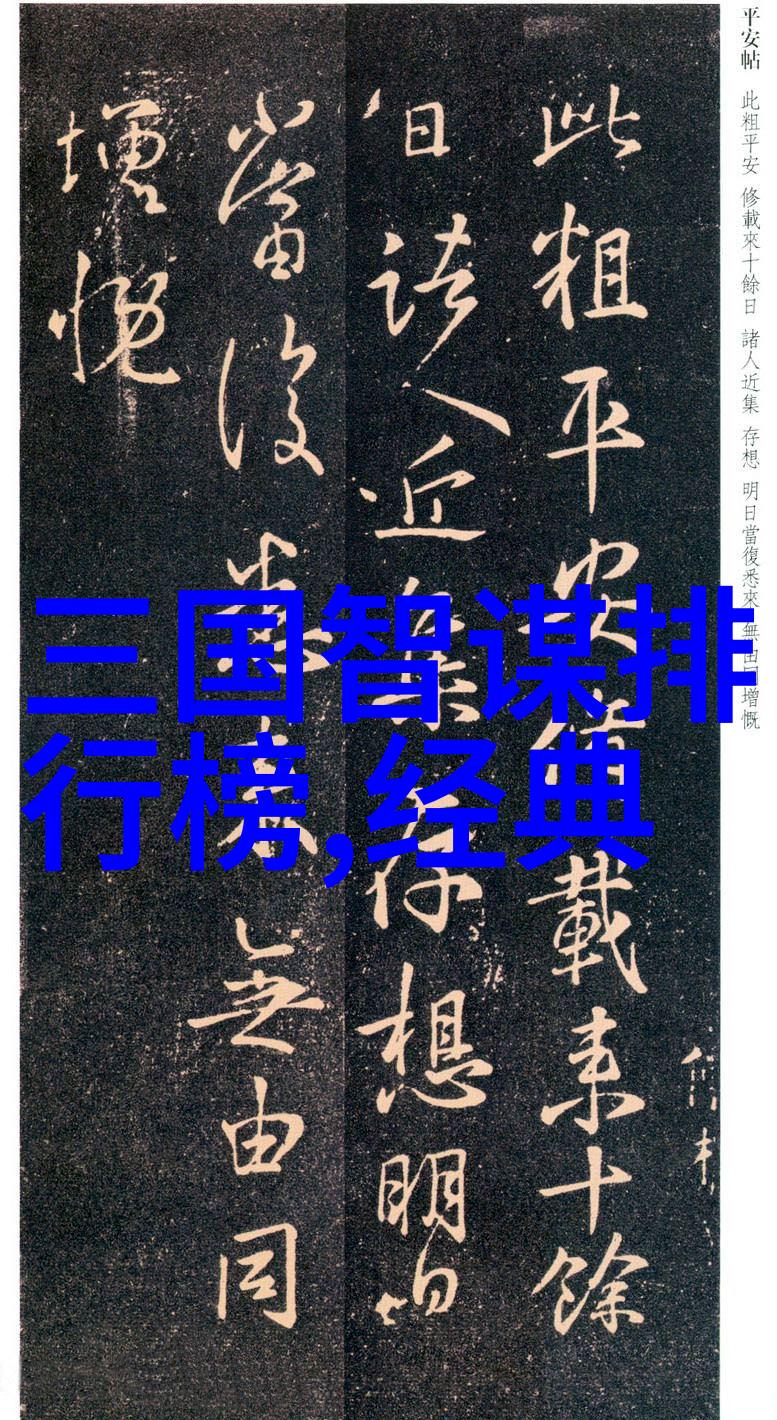 平安帖 此粗平安 修載來十餘日 諸人近集 存想 明日當復悉來 無由同增慨
此粗平安脩載来十餘
日諸人近集存想明日
當復悉来無由同
增慨
三国智谋排
行榜,经典